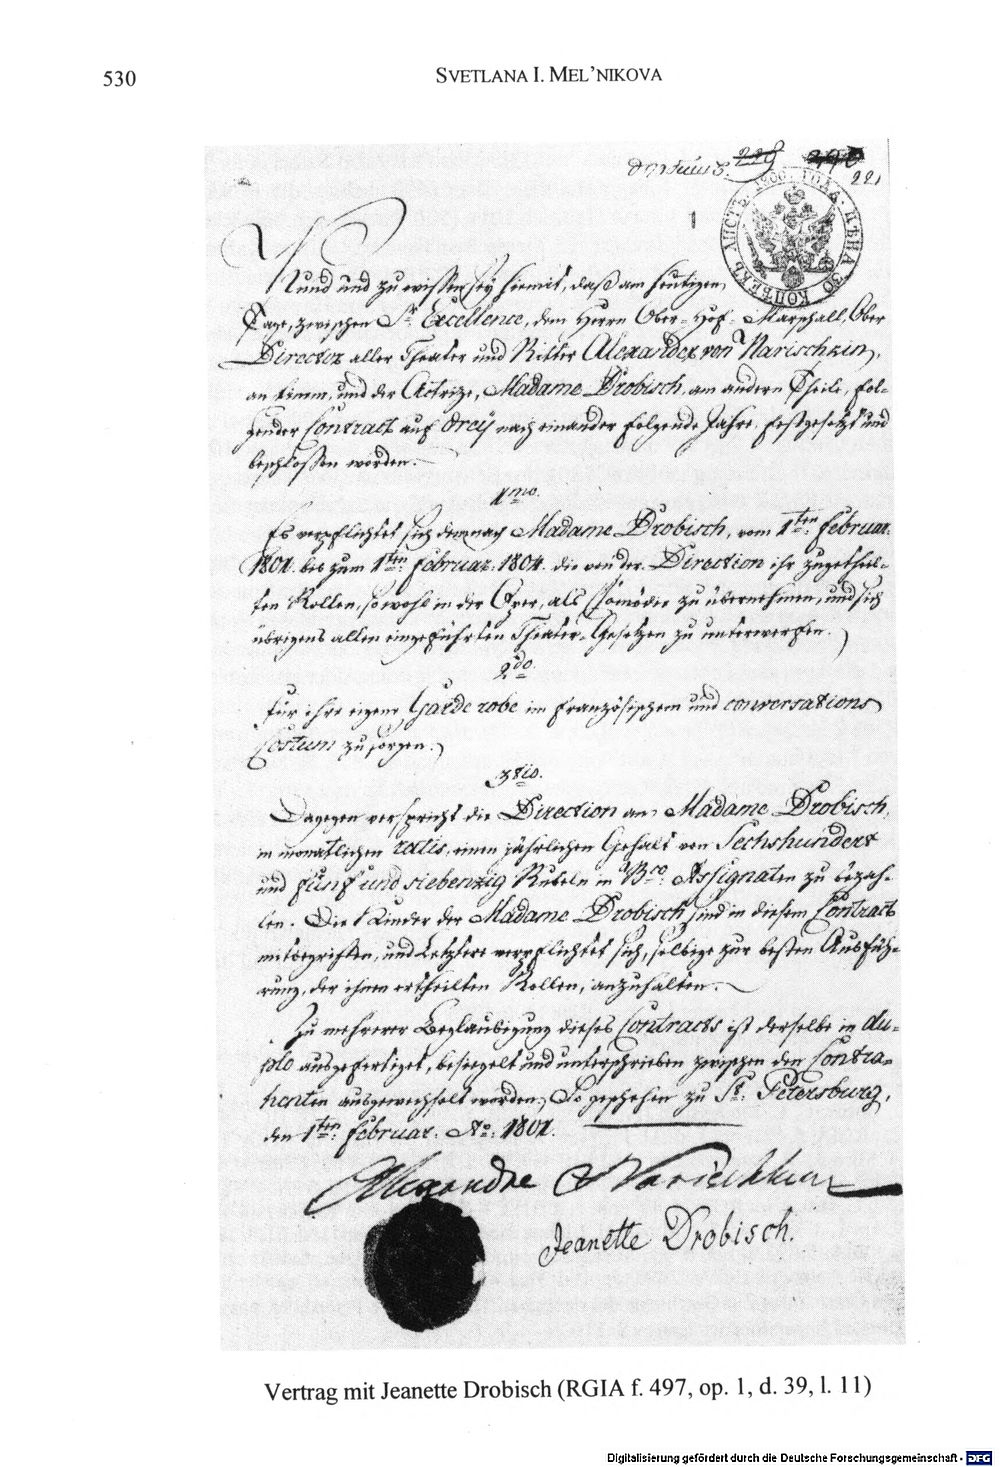 530
SVETLANA I. MEL’NIKOVA
229
221
1
ЛИСТЪ. 1800. ГОДА. ЦѢНА 30 КОПѢЕКЪ
Kund und zu wissen sey hiemit, daß am heutigen
Tage, zwischen Sr. Excellence, dem Herrn Ober-Hof-Marschall, Ober
Director aller Theater und Ritter Alexander von Narischkin,
an einem, und der Actrize, Madame Drobisch, am andern Theile, fol-
gender Contract auf drey nach einander folgende Jahre, festgesetzt und
beschlossen worden.
1mo.
Es verpflichtet sich demnach Madame Drobisch, vom 1ten Februar.
1801. bis zum 1ten Februar. 1804. die von der Direction ihr zugetheil-
ten Rollen, sowohl in der Oper, als Comödie zu übernehmen, und sich
übrigens allen eingeführten Theater-Gesetzen zu unterwerfen.
2do.
Für ihre eigene Garderobe im französischen und conversations
Costum zu sorgen.
3tio.
Dagegen verspricht die Direction an Madame Drobisch,
in monatlichen ratis, einen jährlichen Gehalt von Sechshundert
und fünf und siebenzig Rubeln in Bco. Assignaten zu bezah-
len. Die Kinder der Madame Drobisch sind in diesem Contract
mitbegriffen, und Letztere verpflichtet sich, selbige zur besten Ausfüh-
rung, der ihnen ertheilten Rollen, anzuhalten.
Zu mehrerer Beglaubigung dieses Contracts ist derselbe in du-
plo ausgefertiget, besiegelt und unterschrieben zwischen den Contra-
henten ausgewechselt worden. So geschehen zu St. Petersburg,
den 1ten Februar. Ao. 1801.
Alexandre Narischkin
Jeanette Drobisch.
Vertrag mit Jeanette Drobisch (RGIA f. 497, op. 1, d. 39, l. 11)
Digitalisierung gefördert durch die Deutsche Forschungsgemeinschaft - DFG